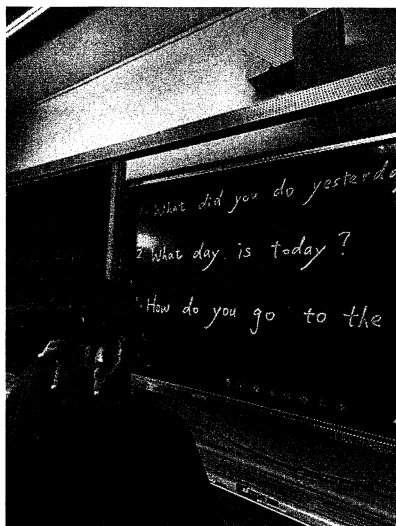 What did you do yesterda
2 What day is today?
How do you go to the